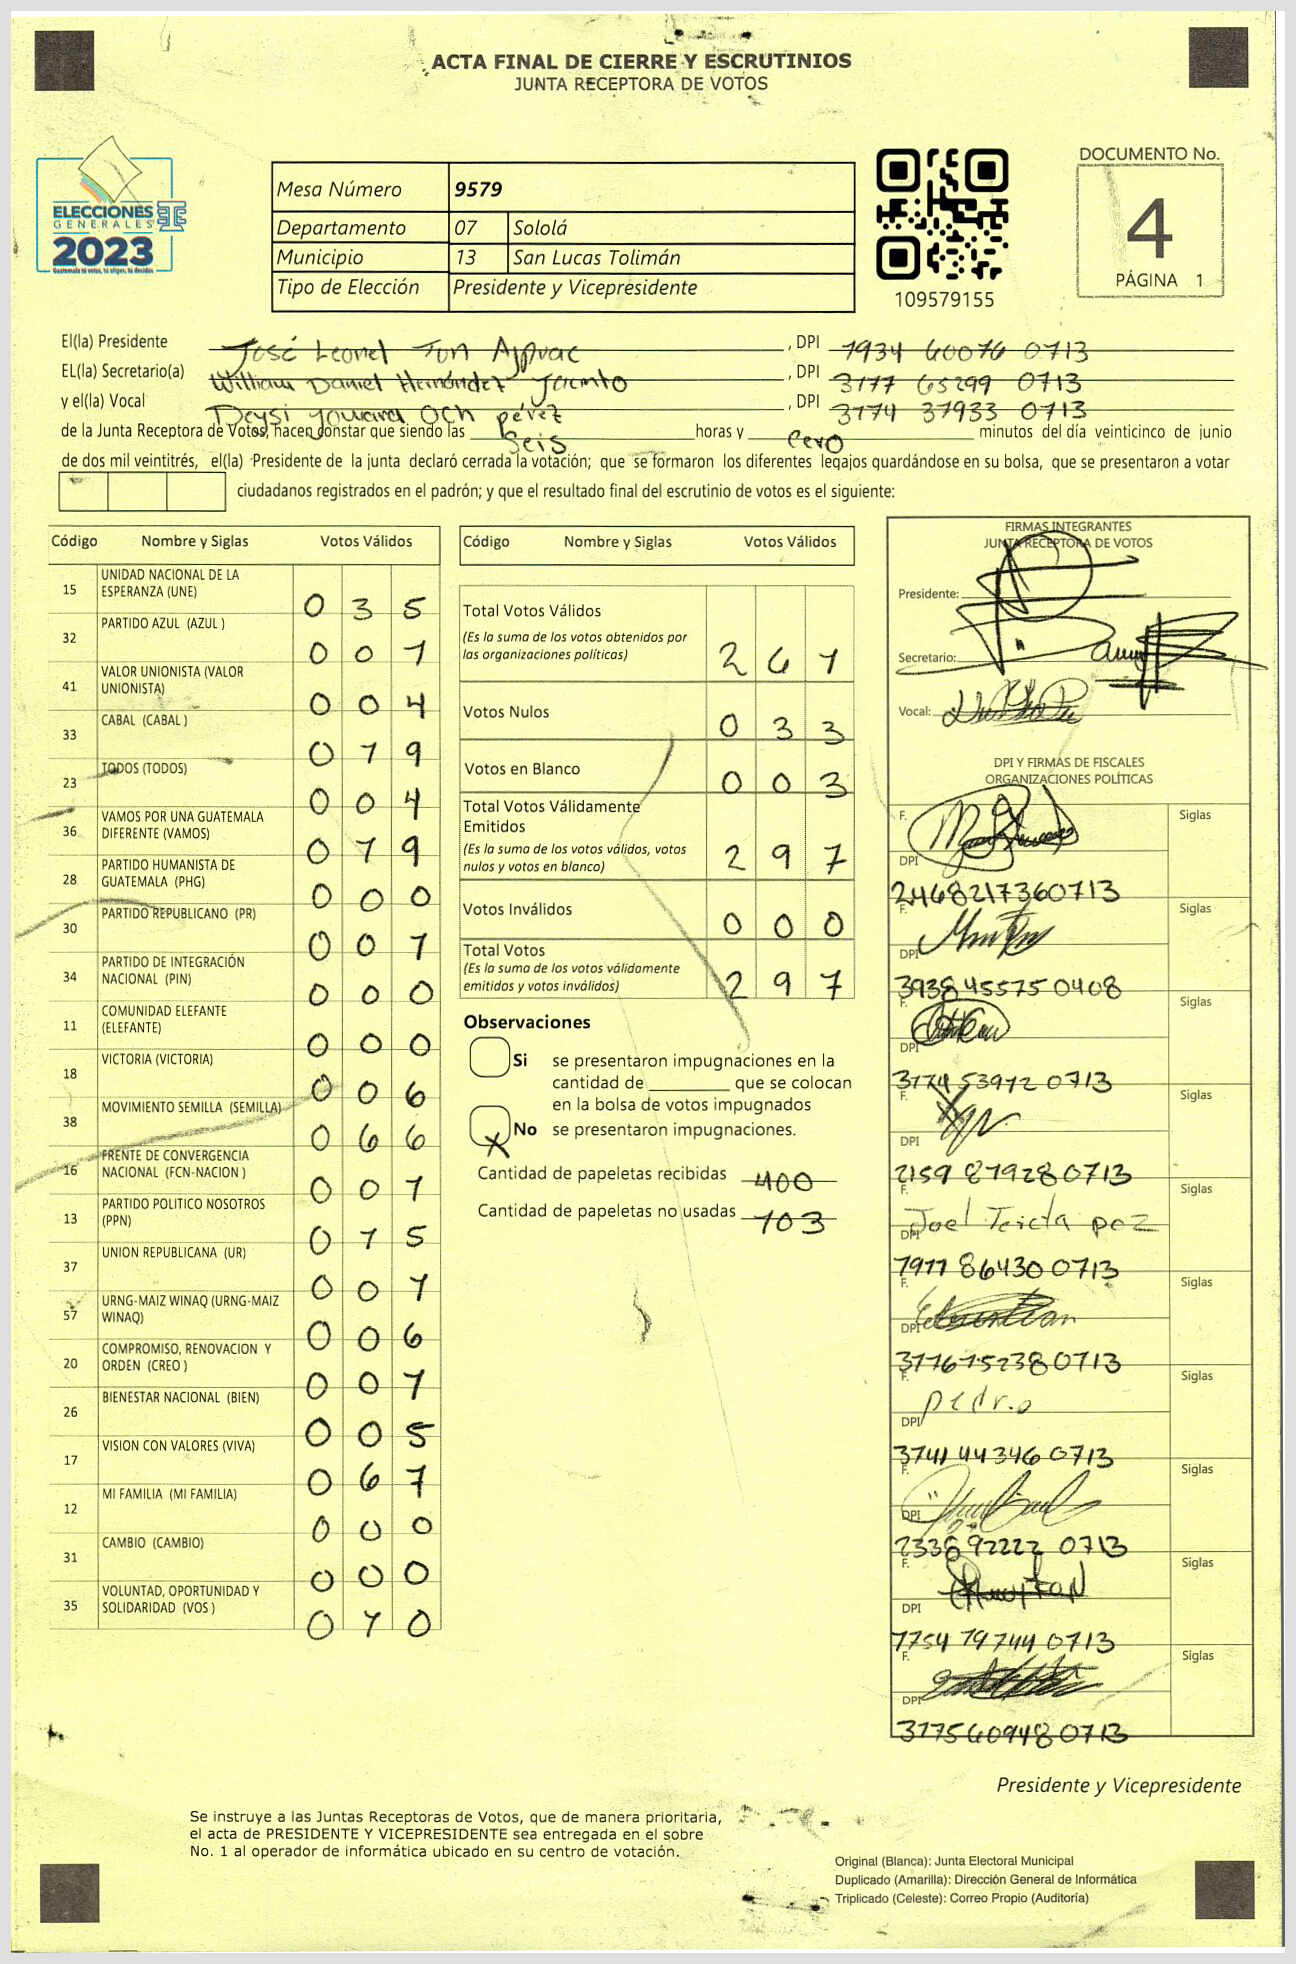 ACTA FINAL DE CIERRE Y ESCRUTINIOS
JUNTA RECEPTORA DE VOTOS
ELECCIONES
GENERALES
2023
Guatemala tú votas, tú eliges, tú decides
Mesa Número 9579
Departamento 07 Sololá
Municipio 13 San Lucas Tolimán
Tipo de Elección Presidente y Vicepresidente
109579155
DOCUMENTO No.
4
PÁGINA 1
El(la) Presidente José Leonel Tun Ajpuac, DPI 1934 60076 0713
EL(la) Secretario(a) William Daniel Hernández Jacinto, DPI 3177 65299 0713
y el(la) Vocal Deysi Och pérez, DPI 3174 37933 0713
de la Junta Receptora de Votos, hacen constar que siendo las seis horas y cero minutos del día veinticinco de junio
de dos mil veintitrés, el(la) Presidente de la junta declaró cerrada la votación; que se formaron los diferentes legajos guardándose en su bolsa, que se presentaron a votar
ciudadanos registrados en el padrón; y que el resultado final del escrutinio de votos es el siguiente:
Código Nombre y Siglas Votos Válidos
15 UNIDAD NACIONAL DE LA
ESPERANZA (UNE) 0 3 5
32 PARTIDO AZUL (AZUL ) 0 0 1
41 VALOR UNIONISTA (VALOR
UNIONISTA) 0 0 4
33 CABAL (CABAL ) 0 1 9
23 TODOS (TODOS) 0 0 4
36 VAMOS POR UNA GUATEMALA
DIFERENTE (VAMOS) 0 1 9
28 PARTIDO HUMANISTA DE
GUATEMALA (PHG) 0 0 0
30 PARTIDO REPUBLICANO (PR) 0 0 1
34 PARTIDO DE INTEGRACIÓN
NACIONAL (PIN) 0 0 0
11 COMUNIDAD ELEFANTE
(ELEFANTE) 0 0 0
18 VICTORIA (VICTORIA) 0 0 6
38 MOVIMIENTO SEMILLA (SEMILLA) 0 6 6
16 FRENTE DE CONVERGENCIA
NACIONAL (FCN-NACION ) 0 0 1
13 PARTIDO POLITICO NOSOTROS
(PPN) 0 1 5
37 UNION REPUBLICANA (UR) 0 0 1
57 URNG-MAIZ WINAQ (URNG-MAIZ
WINAQ) 0 0 6
20 COMPROMISO, RENOVACION Y
ORDEN (CREO ) 0 0 1
26 BIENESTAR NACIONAL (BIEN) 0 0 5
17 VISION CON VALORES (VIVA) 0 6 7
12 MI FAMILIA (MI FAMILIA) 0 0 0
31 CAMBIO (CAMBIO) 0 0 0
35 VOLUNTAD, OPORTUNIDAD Y
SOLIDARIDAD (VOS ) 0 1 0
Código Nombre y Siglas Votos Válidos
Total Votos Válidos
(Es la suma de los votos obtenidos por
las organizaciones políticas) 2 6 1
Votos Nulos 0 3 3
Votos en Blanco 0 0 3
Total Votos Válidamente
Emitidos
(Es la suma de los votos válidos, votos
nulos y votos en blanco) 2 9 7
Votos Inválidos 0 0 0
Total Votos
(Es la suma de los votos válidamente
emitidos y votos inválidos) 2 9 7
Observaciones
Si se presentaron impugnaciones en la
cantidad de ________ que se colocan
en la bolsa de votos impugnados
X No se presentaron impugnaciones.
Cantidad de papeletas recibidas 400
Cantidad de papeletas no usadas 103
FIRMAS INTEGRANTES
JUNTA RECEPTORA DE VOTOS
Presidente:
Secretario:
Vocal:
DPI Y FIRMAS DE FISCALES
ORGANIZACIONES POLÍTICAS
F. Siglas
DPI
2468217360713
F. Siglas
DPI
3938 45575 0408
F. Siglas
DPI
3174 53912 0713
F. Siglas
DPI
2159 87928 0713
F. Joel paz Siglas
DPI
1977 86430 0713
F. Siglas
DPI
3176152380713
F. pedro Siglas
DPI
3741 44346 0713
F. Siglas
DPI
2338 92222 0713
F. Siglas
DPI
1754 79744 0713
F. Siglas
DPI
3175609480713
Presidente y Vicepresidente
Se instruye a las Juntas Receptoras de Votos, que de manera prioritaria,
el acta de PRESIDENTE Y VICEPRESIDENTE sea entregada en el sobre
No. 1 al operador de informática ubicado en su centro de votación.
Original (Blanca): Junta Electoral Municipal
Duplicado (Amarilla): Dirección General de Informática
Triplicado (Celeste): Correo Propio (Auditoría)